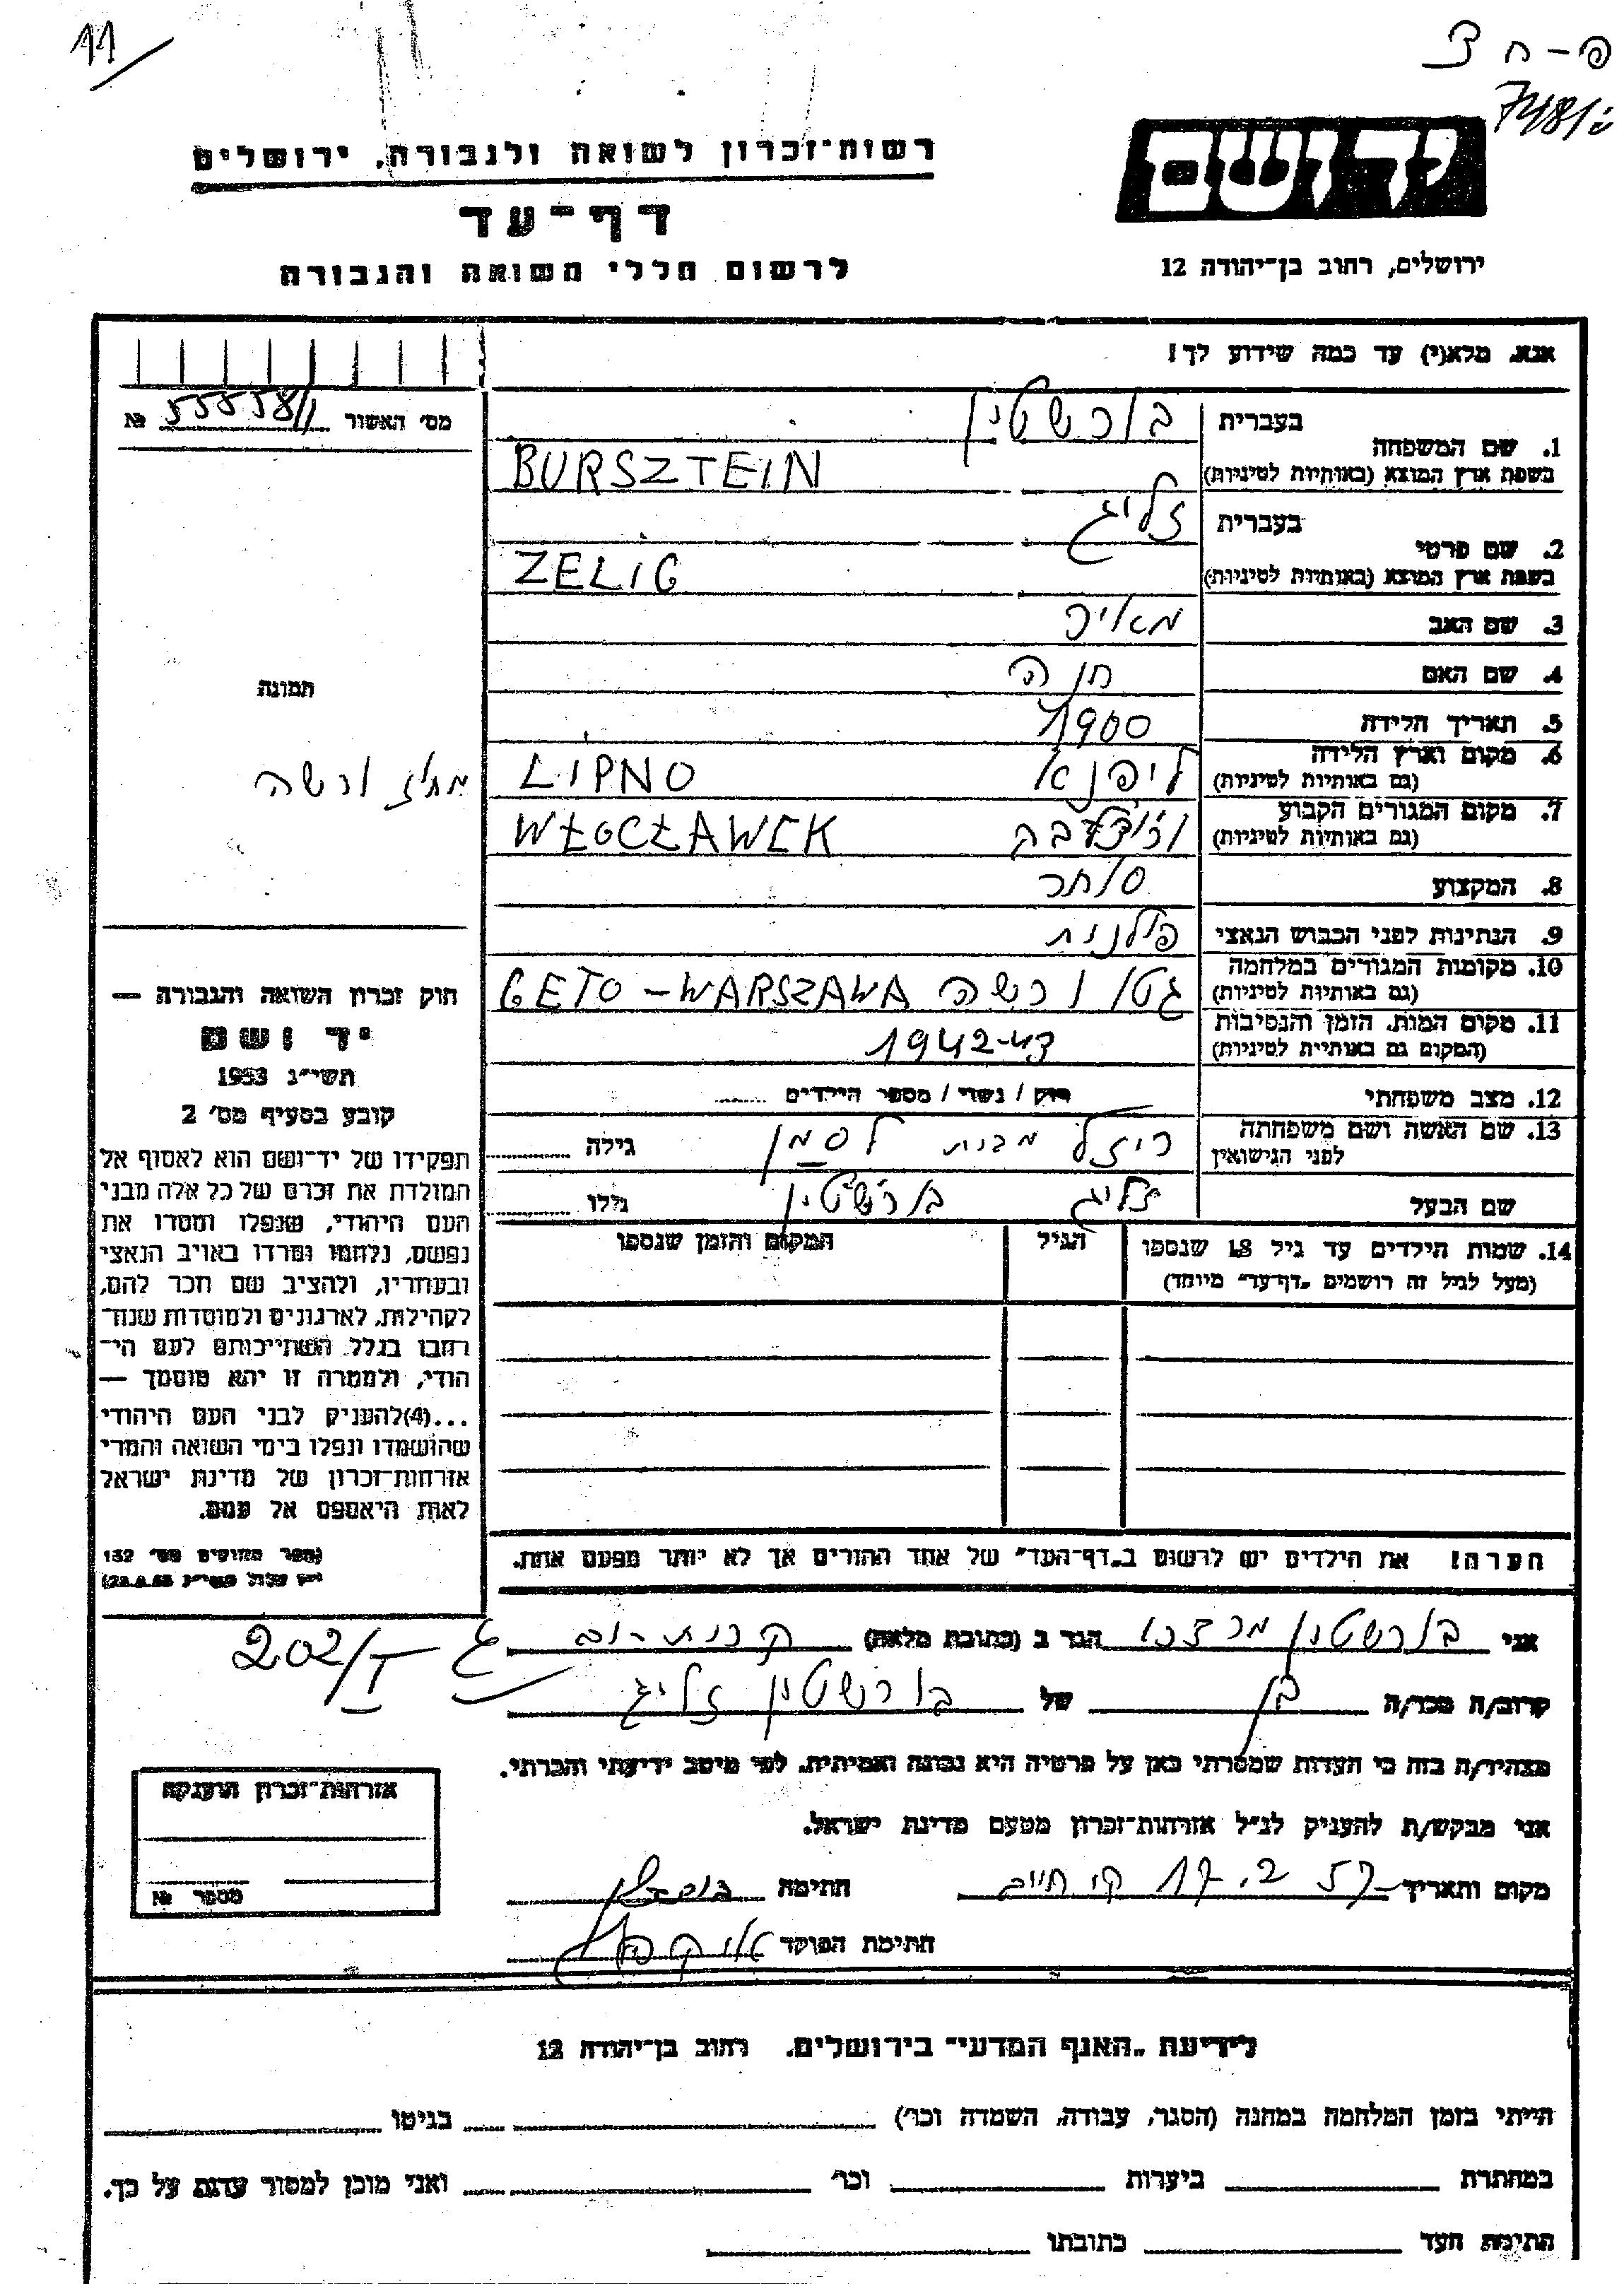 11
פ-ח 3
יד ושם
רשות-זכרון לשואה ולגבורה, ירושלים
דף-עד
לרשום חללי השואה והגבורה
ירושלים, רחוב בן-יהודה 12
אנא, מלא(י) עד כמה שידוע לך!
מס' האשור 55858/1 №
1. שם המשפחה
בעברית בורשטין
בשפת ארץ המוצא (באותיות לטיניות) BURSZTEIN
2. שם פרטי
בעברית זליג
בשפת ארץ המוצא (באותיות לטיניות) ZELIG
3. שם האב מאיר
4. שם האם חנה
תמונה
5. תאריך הלידה 1900
6. מקום וארץ הלידה ליפנא LIPNO
(גם באותיות לטיניות)
7. מקום המגורים הקבוע WŁOCŁAWEK
(גם באותיות לטיניות)
8. המקצוע סוחר
9. הנתינות לפני הכבוש הנאצי פולנית
10. מקומות המגורים במלחמה גטו ורשה GETO-WARSZAWA
(גם באותיות לטיניות)
11. מקום המות, הזמן והנסיבות 1942-43
(המקום גם באותיות לטיניות)
12. מצב משפחתי רוק / נשוי / מספר הילדים
13. שם האשה ושם משפחתה רייזל מבית לסמן גילה
לפני הנישואין
שם הבעל זליג בורשטין גילו
14. שמות הילדים עד גיל 18 שנספו הגיל המקום והזמן שנספו
(מעל לגיל זה רושמים "דף-עד" מיוחד)
חוק זכרון השואה והגבורה —
יד ושם
תשי"ג 1953
קובע בסעיף מס' 2
תפקידו של יד-ושם הוא לאסוף אל
המולדת את זכרם של כל אלה מבני
העם היהודי, שנפלו ומסרו את
נפשם, נלחמו ומרדו באויב הנאצי
ובעוזריו, ולהציב שם וזכר להם,
לקהילות, לארגונים ולמוסדות שנח-
רבו בגלל השתייכותם לעם הי-
הודי, ולמטרה זו יהא מוסמך —
...(4) להעניק לבני העם היהודי
שהושמדו ונפלו בימי השואה והמרי
אזרחות-זכרון של מדינת ישראל
לאות היאספם אל עמם.
(ספר החוקים מס' 132
הערה! את הילדים יש לרשום ב"דף-העד" של אחד ההורים אך לא יותר מפעם אחת.
202/I
אני בורשטין מרדכי הגר ב (כתובת מלאה)
קרוב/ה מכר/ה בן של בורשטין זליג
מצהיר/ה בזה כי העדות שמסרתי כאן על פרטיה היא נכונה ואמיתית, לפי מיטב ידיעתי והכרתי.
אני מבקש/ת להעניק לנ"ל אזרחות-זכרון מטעם מדינת ישראל.
מקום ותאריך 17.2.57 חתימה
חתימת הפוקד
אזרחות-זכרון הוענקה
מספר №
לידיעת "האגף המדעי" בירושלים, רחוב בן-יהודה 12
הייתי בזמן המלחמה במחנה (הסגר, עבודה, השמדה וכו') בגיטו
במחתרת ביערות וכו' ואני מוכן למסור עדות על כך.
חתימת העד כתובתו